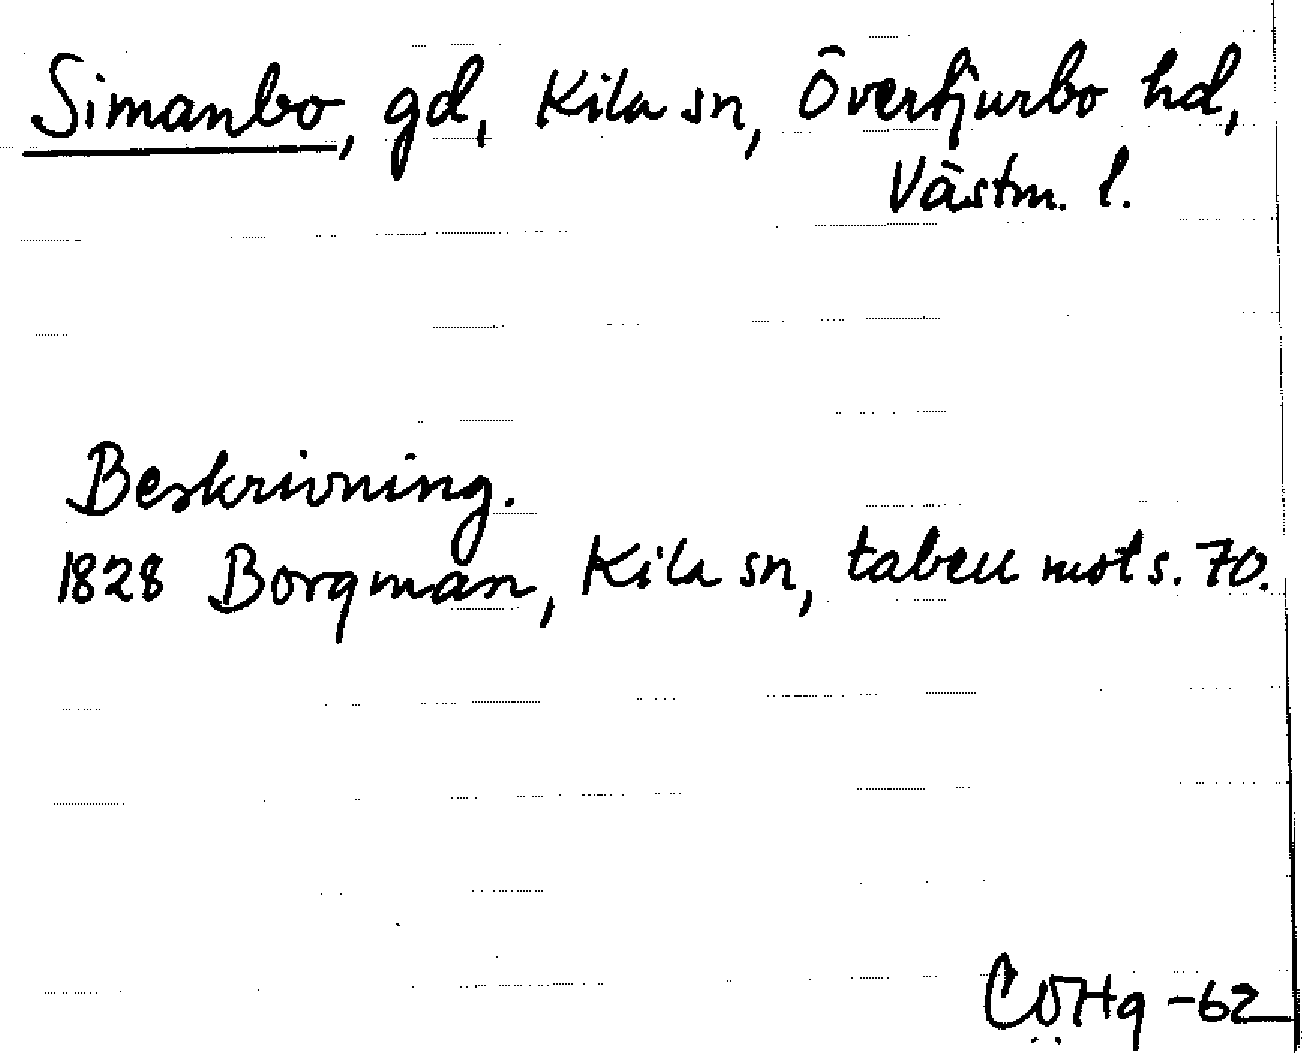 Simanbo, gd, Kila sn, Övertjurbo hd,
Västm. l.
Beskrivning.
1828 Borgman, Kila sn, tabell mot s. 70.
CÖHg -62